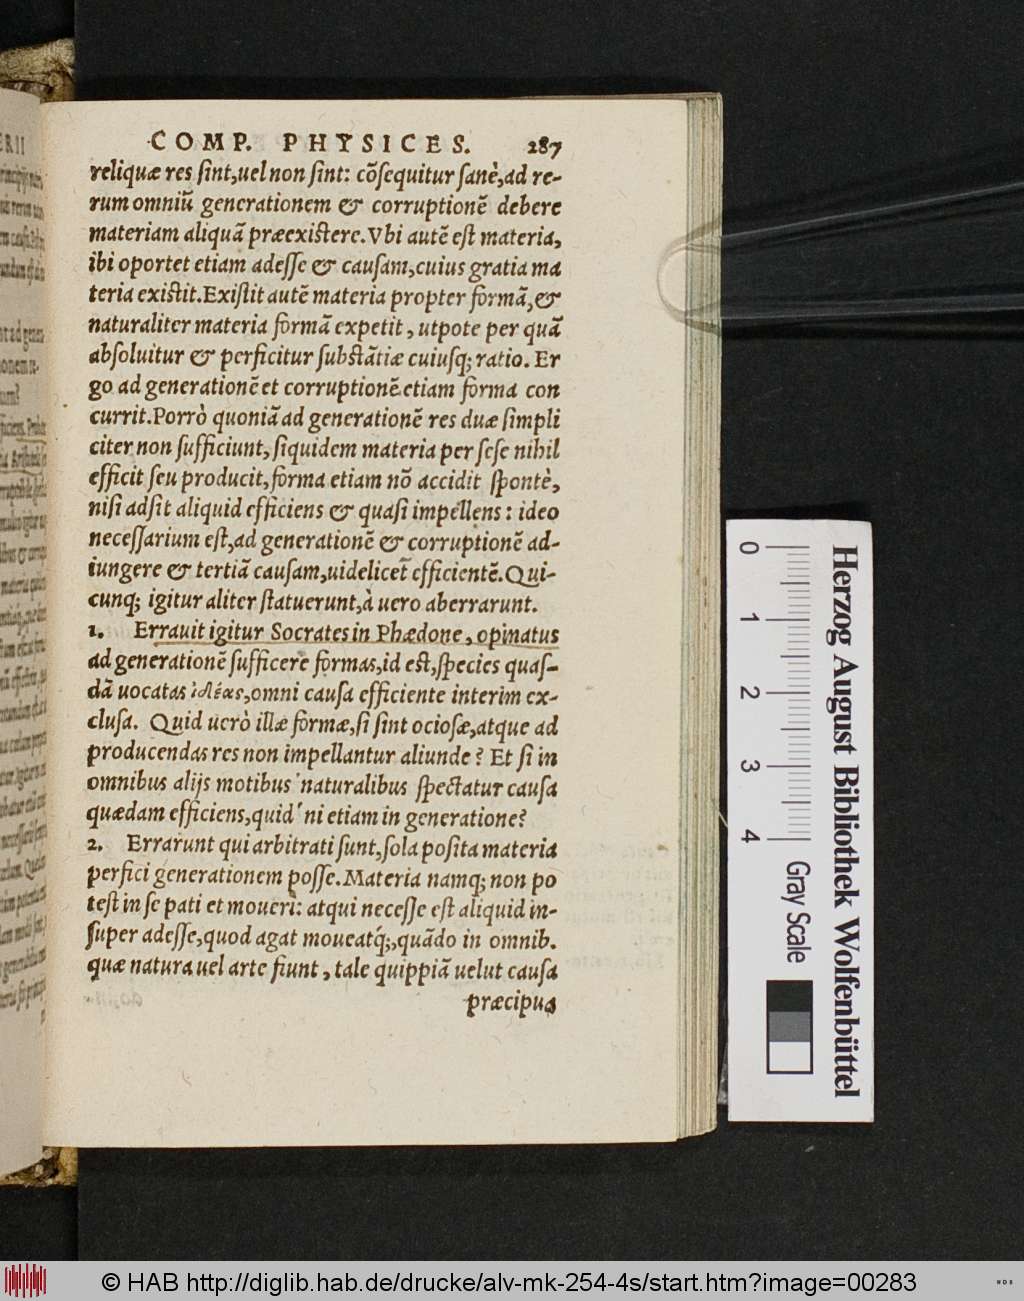 COMP. PHYSICES. 287
reliquæ res ſint,uel non ſint: cõſequitur ſanè,ad re-
rum omniũ generationem & corruptionẽ debere
materiam aliquã præexiſtere.Vbi autẽ eſt materia,
ibi oportet etiam adeſſe & cauſam,cuius gratia ma
teria exiſtit.Exiſtit autẽ materia propter formã,&
naturaliter materia formã expetit, utpote per quã
abſoluitur & perficitur ſubſtãtiæ cuiusq; ratio. Er
go ad generationẽ et corruptionẽ etiam forma con
currit.Porrò quoniã ad generationẽ res duæ ſimpli
citer non ſufficiunt, ſiquidem materia per ſeſe nihil
efficit ſeu producit,forma etiam nõ accidit ſpontè,
niſi adſit aliquid efficiens & quaſi impellens: ideo
neceſſarium eſt,ad generationẽ & corruptionẽ ad-
iungere & tertiã cauſam,uidelicet efficientẽ.Qui-
cunq; igitur aliter ſtatuerunt,à uero aberrarunt.
1. Errauit igitur Socrates in Phædone, opinatus
ad generationẽ ſufficere formas,id eſt,ſpecies quaſ-
dã uocatas ἰδέας,omni cauſa efficiente interim ex-
cluſa. Quid uerò illæ formæ,ſi ſint ocioſæ,atque ad
producendas res non impellantur aliunde? Et ſi in
omnibus alijs motibus naturalibus ſpectatur cauſa
quædam efficiens,quid' ni etiam in generatione?
2. Errarunt qui arbitrati ſunt,ſola poſita materia
perfici generationem poſſe.Materia namq; non po
teſt in ſe pati et moueri: atqui neceſſe eſt aliquid in-
ſuper adeſſe,quod agat moueatq́;,quãdo in omnib.
quæ natura uel arte fiunt, tale quippiã uelut cauſa
præcipua
0 1 2 3 4
Gray Scale
Herzog August Bibliothek Wolfenbüttel
© HAB http://diglib.hab.de/drucke/alv-mk-254-4s/start.htm?image=00283